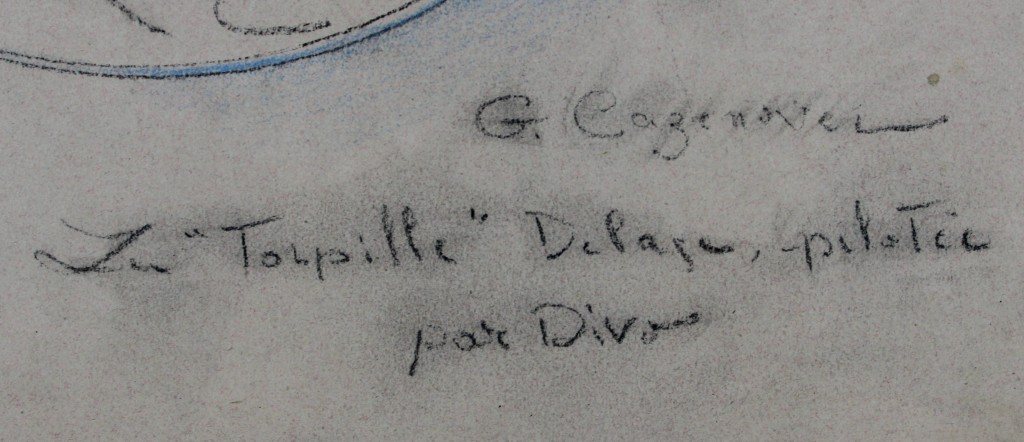 G. Cazenove
La "Torpille" Delage, pilotée
par Divo